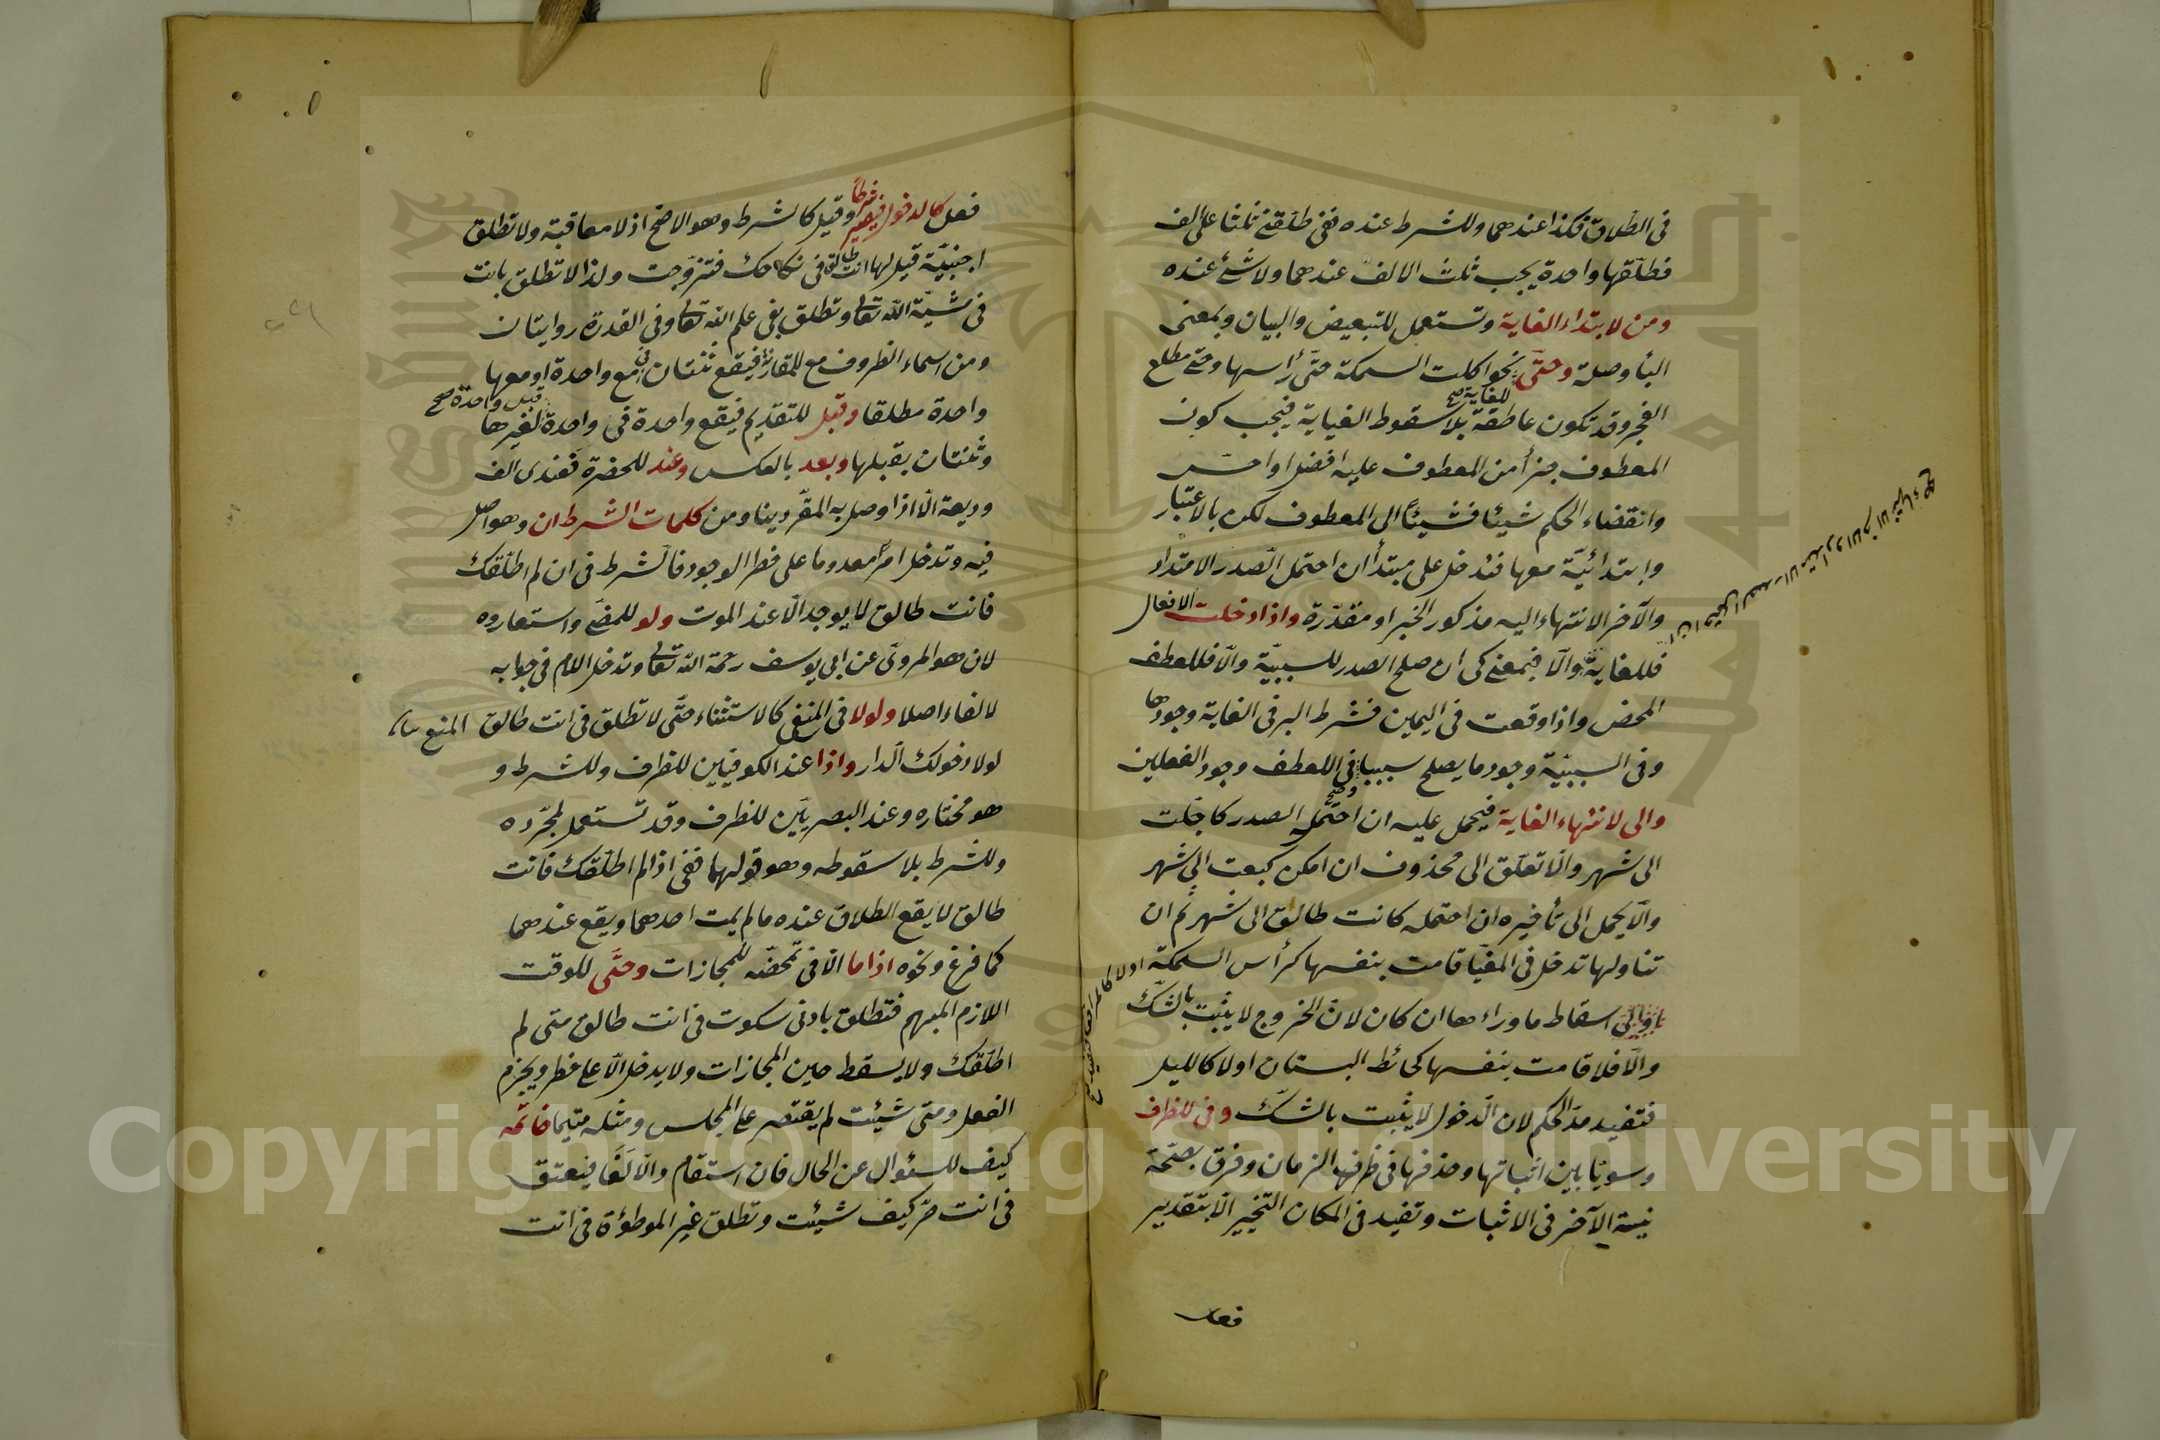 فى الطلاق فكذا عندهما وللشرط عنده ففى طلقنى ثلثا على الف
فطلقها واحدة يجب ثلث الالف عندهما ولا شئ عنده
ومن لابتداء الغاية وتستعمل للتبعيض والبيان وبمعنى
الباء وصلة وحتى للغاية صح نحو اكلت السمكة حتى رأسها وحتى مطلع
الفجر وقد تكون عاطفة بلا سقوط الغاية فيجب كون
المعطوف جزأ من المعطوف عليه افضل او اخس
وانقضاء الحكم شيئا فشيئا الى المعطوف لكن بالاعتبار
وابتدائية معها فتدخل على مبتدأ ان احتمل الصدر الامتداد
والآخر الانتهاء اليه مذكور الخبر او مقدرة واذا دخلت الافعال
فللغاية والا فبمعنى كى ان صلح الصدر للسببية والا فللعطف
ان احتمل الصدر الامتداد والآخر الانتهاء صح
المحض واذا وقعت فى اليمين فشرط البر فى الغاية وجودها
وفى السببية وجود ما يصلح سببا وفى العطف وجود الفعلين
والى لانتهاء الغاية فيحمل عليه ان احتمله الصدر كاجلت
الى شهر والا تعلق الى محذوف ان امكن كبعت الى شهر
والا يحمل الى تأخيره ان احتمله كانت طالق الى شهر ثم ان
تناولها تدخل فى المغيا قامت بنفسها كرأس السمكة او لا كالمرافق
اسقاط ما وراءها ان كان لان الخروج لا يثبت بالشك
والا فلا قامت بنفسها كحائط البستان او لا كالليل
فتفيد مد الحكم لان الدخول لا يثبت بالشك وفى للظرف
وسويا بين اثباتها وحذفها فى ظرف الزمان وفرق بصحة
نية الآخر فى الاثبات وتفيد فى المكان التخيير الا بتقدير
فعل
فعل كالدخول فيصير شرطا وقيل كالشرط وهو الاصح اذ لا معاقبة ولا تطلق
اجنبية قيل لها انت طالق فى نكاحك فتزوجت ولذا لا تطلق بانت
فى مشية الله تعالى وتطلق بفى علم الله تعالى وفى القدرة روايتان
ومن اسماء الظروف مع للمقارنة فيقع ثنتان فى مع واحدة او معها
واحدة مطلقا وقبل للتقديم فيقع واحدة فى قبل واحدة صح واحدة لغيرها
وثنتان بقبلها وبعد بالعكس وعند للحضرة فعندى الف
وديعة الا اذا وصل به المقر دينا ومن كلمات الشرط ان وهو اصل
فيه وتدخل امرا معدوما على خطر الوجود فالشرط فى ان لم اطلقك
فانت طالق لا يوجد الا عند الموت ولو للمضى واستعاروه
لان هو المروى عن ابى يوسف رحمة الله تعالى وتدخل اللام فى جوابه
لا لفاء اصلا ولولا فى المنع كالاستثناء حتى لا تطلق فى انت طالق
لولا دخولك الدار واذا عند الكوفيين للظرف وللشرط و
هو مختاره وعند البصريين للظرف وقد تستعمل لمجرده
وللشرط بلا سقوطه وهو قولهما ففى اذا لم اطلقك فانت
طالق لا يقع الطلاق عنده ما لم يمت احدهما ويقع عندهما
كما فرغ ونحوه اذاما الا فى تمحضه للمجازات ومتى للوقت
اللازم المبهم فتطلق بادنى سكوت فى انت طالق متى لم
اطلقك ولا يسقط حين المجازات ولا يدخل الا على خطر ويجزم
الفعل ومتى شئت لم يقتصر على المجلس ومثله متيما خاتمه
كيف للسئوال عن الحال فان استقام والا لغا فيعتق
فى انت حر كيف شئت وتطلق غير الموطؤة فى انت
Copyright © King Saud University